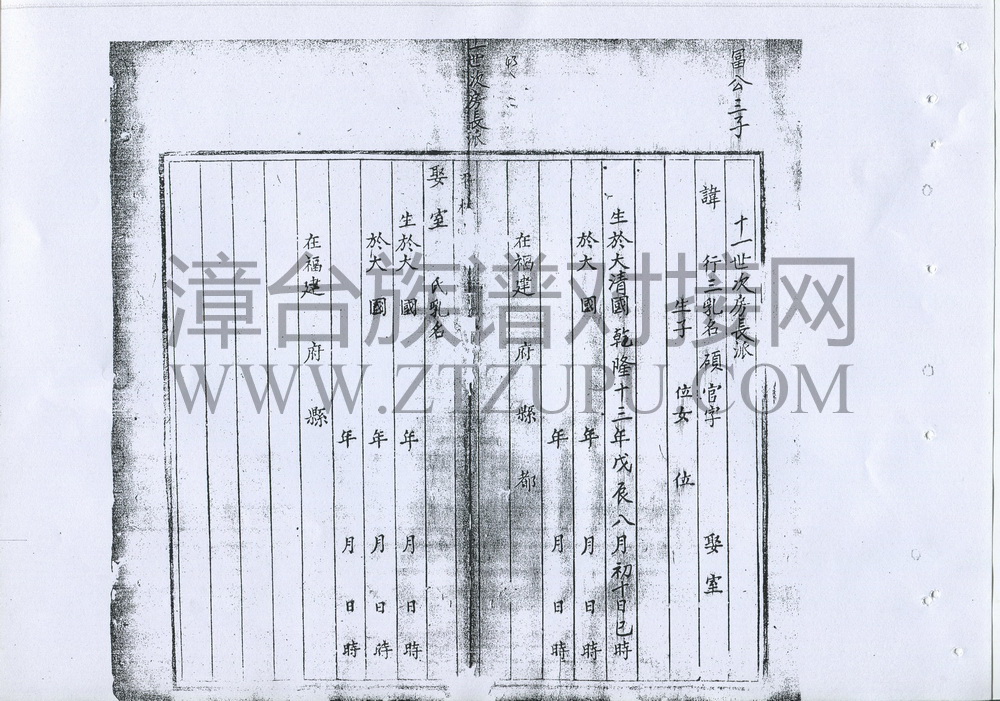 冨公三子
十一世次房長派
諱 行三乳名碩官字 娶室
生子 位女 位
生於大清國乾隆十三年戊辰八月初十日巳時
於大 國 年 月 日 時
年 月 日 時
在福建 府 縣 都
世次房長派
娶室 氏乳名
生於大 國 年 月 日 時
於大 國 年 月 日 時
年 月 日 時
在福建 府 縣
漳台族谱对接网
WWW.ZTZUPU.COM